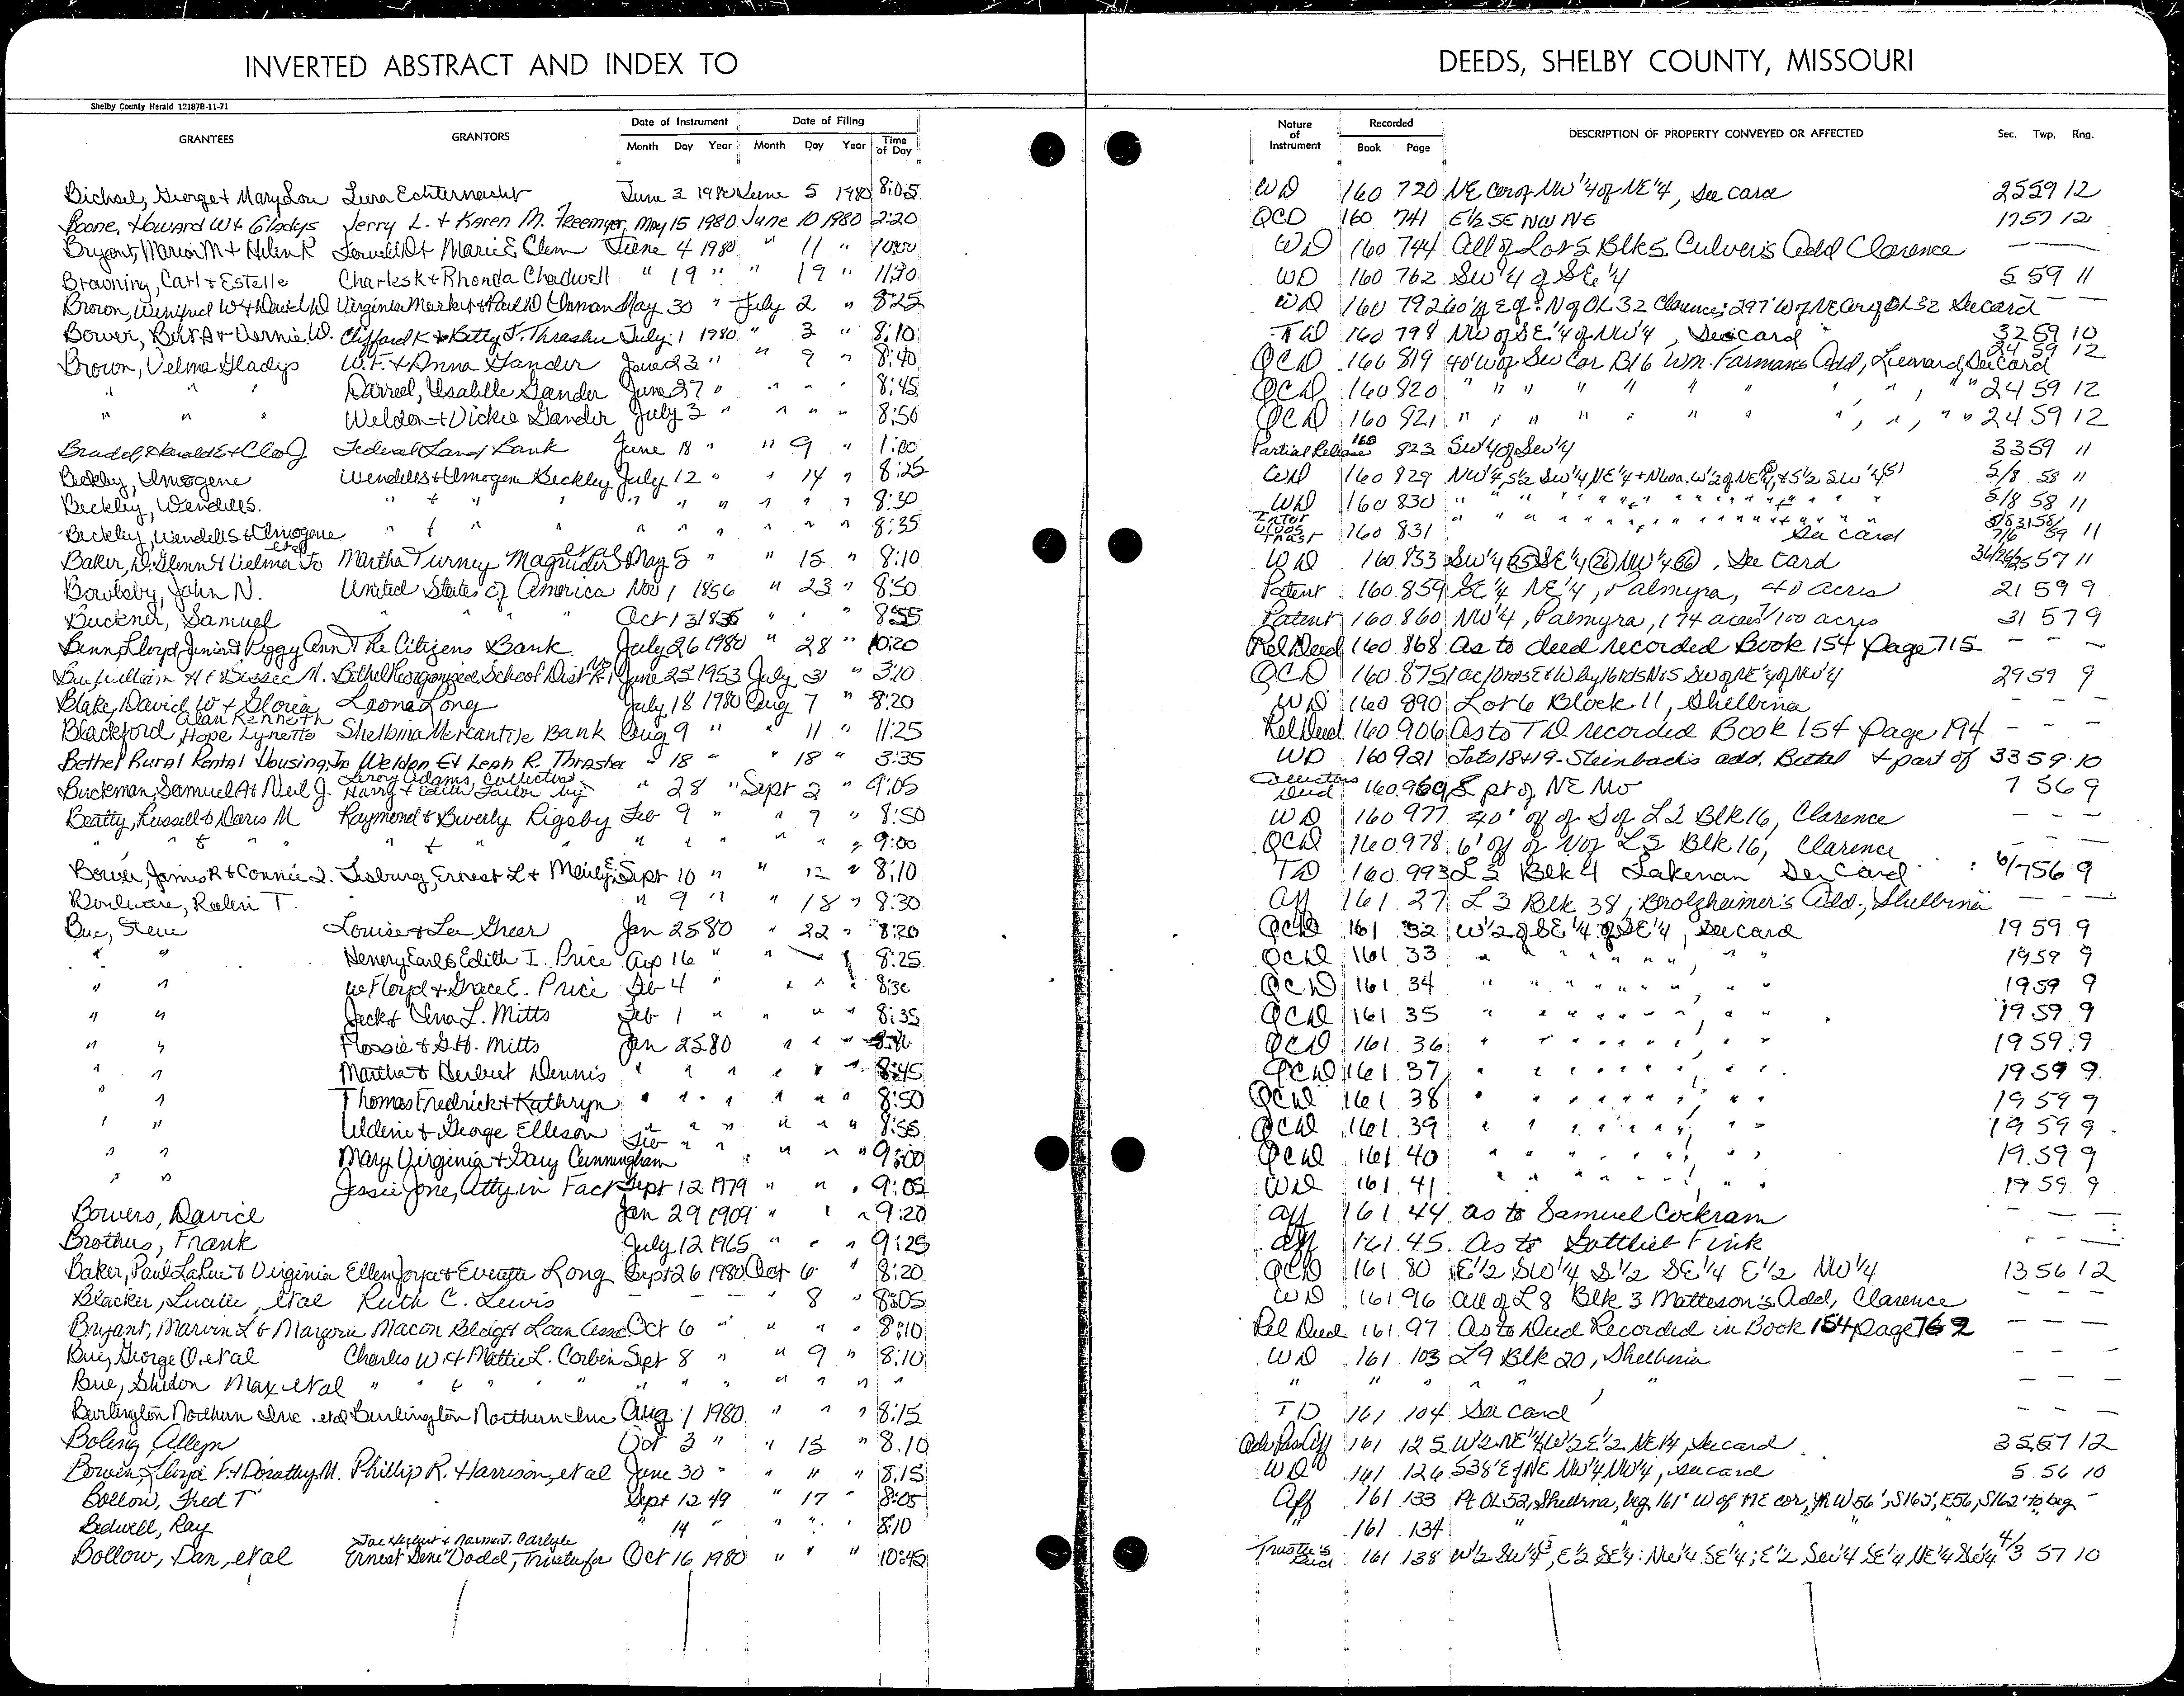 INVERTED ABSTRACT AND INDEX TO DEEDS, SHELBY COUNTY, MISSOURI
Shelby County Herald 12187B-11-71
GRANTEES GRANTORS Date of Instrument Month Day Year Date of Filing Month Day Year Time of Day Nature of Instrument Recorded Book Page DESCRIPTION OF PROPERTY CONVEYED OR AFFECTED Sec. Twp. Rng.
Bichsel, George + Mary Lou Lura Echternacht June 2 1980 June 5 1980 8:05 WD 160 720 NE Cor of NW 1/4 of NE 1/4, See card 25 59 12
Boone, Howard W + Gladys Jerry L. + Karen M. Freemyer May 15 1980 June 10 1980 2:20 QCD 160 741 E 1/2 SE NW NE 17 57 12
Bryant, Marion M + Helen R Lowell D + Marie E Clem June 4 1980 " 11 " 10:00 WD 160 744 All of Lot 5 Blk 5 Culver's Add Clarence —
Browning, Carl + Estelle Charles K + Rhonda Chadwell " 19 " " 19 " 11:30 WD 160 762 SW 1/4 of SE 1/4 5 59 11
Brown, Winifred W + David D Virginia Markert + Paul D May 30 " July 2 " 8:25 WD 160 792 60' of Eq: N of OL 32 Clarence; 297' W of NE Cor of OL 32 See card — —
Bower, Burt A + Vernie W. Clifford K + Betty J. Thrasher July 1 1980 " 3 " 8:10 TD 160 798 NW of SE 1/4 of NW 1/4, See card 32 59 10
Brown, Velma Gladys W. F. + Anna Gander June 23 " " 9 " 8:40 QCD 160 819 40' W of SW Cor Bl 6 Wm. Farmans Add, Leonard, See Card 24 59 12
" " " Darrel, Isabelle Gander June 27 " " " " 8:45 QCD 160 820 " " " " " " " " 24 59 12
" " " Weldon + Vickie Gander July 3 " " " " 8:50 QCD 160 821 " " " " " " " " 24 59 12
Harold E + Cleo J Federal Land Bank June 18 " " 9 " 1:00 Partial Release 160 823 SW 1/4 of SW 1/4 33 59 11
Beckley, Imogene Wendell S + Imogene Beckley July 12 " " 14 " 8:25 WD 160 829 NW 1/4, S 1/2 SW 1/4, NE 1/4 + W 1/2 of NE 1/4, + S 1/2 SW 1/4 5/8 58 11
Beckley, Wendell S. " + " " " " " " " 8:30 WD 160 830 " " " " " " 5/8 58 11
Beckley, Wendell S + Imogene " + " " " " " " " 8:35 Inter Vivos Trust 160 831 " " " " " " See card 11
Baker, D. Glenn + Velma Jo etal Martha Turney Magruder etal May 5 " " 15 " 8:10 WD 160 853 SW 1/4 (25) SE 1/4 (26) NW 1/4 (36), See Card 36/26/25 57 11
Bowlsby, John N. United States of America Nov 1 1856 " 23 " 8:50 Patent 160 859 SE 1/4 NE 1/4, Palmyra, 40 acres 21 59 9
Buckner, Samuel " " " Oct 13 1835 " " " 8:55 Patent 160 860 NW 1/4, Palmyra, 174 acres 7/100 acres 31 57 9
Benn, Lloyd Junior + Peggy Ann The Citizens Bank July 26 1980 " 28 " 10:20 Rel Deed 160 868 As to deed recorded Book 154 Page 715 — — —
Bue, William H + Bessie M. Bethel Reorganized School Dist R1 June 25 1953 July 31 " 3:10 QCD 160 875 1 ac 29 59 9
Blake, David W + Gloria Leona Long July 18 1980 Aug 7 " 8:20 WD 160 890 Lot 6 Block 11, Shelbina
Blackford, Alan Kenneth Hope Lynette Shelbina Mercantile Bank Aug 9 " " 11 " 11:25 Rel Deed 160 906 As to TD recorded Book 154 Page 194 — — —
Bethel Rural Rental Housing, In Weldon E + Leah R. Thrasher " 18 " " 18 " 3:35 WD 160 921 Lots 18 + 19 - Steinbach's add. Bethel + part of 33 59 10
Buckman, Samuel A + Neil J. Leroy Adams, Collector Harry + Edith Taylor by " 28 " Sept 2 " 9:05 Collectors Deed 160 969 E pt of NE Mo 7 56 9
Beatty, Russell + Doris M Raymond + Beverly Rigsby Feb 9 " " 9 " 8:50 WD 160 977 40' of of S of L2 Blk 16, Clarence — — —
" " + " " + " " " " " " 9:00 QCD 160 978 6' of of N of L3 Blk 16, Clarence — — —
Bower, James R + Connie J. Lisburg, Ernest L + Sept 10 " " 12 " 8:10 TD 160 993 L3 Blk 4 Lakenan See Card 6/7 56 9
Boulware, Ralen T. " 9 " " 18 " 8:30 Aff 161 27 L 3 Blk 38, Brolzheimer's Add., Shelbina — — —
Bue, Steve Louise + Le Greer Jan 25 80 " 22 " 8:20 QCD 161 32 W 1/2 of SE 1/4 of SE 1/4, See card 19 59 9
" " Henery Earl + Edith I. Price Apr 16 " " " " 8:25 QCD 161 33 " " " " " " 19 59 9
" " W Floyd + Grace E. Price Feb 4 " " " " 8:30 QCD 161 34 " " " " " " 19 59 9
" " Jack + Ina L. Mitts Feb 1 " " " " 8:35 QCD 161 35 " " " " " " 19 59 9
" " Flossie + G.H. Mitts Jan 25 80 " " " 8:40 QCD 161 36 " " " " " " 19 59 9
" " Martha + Herbert Dennis " " " " " " 8:45 QCD 161 37 " " " " " " 19 59 9
" " Thomas Fredrick + Kathryn " " " " " " 8:50 QCD 161 38 " " " " " " 19 59 9
" " Uldene + George Ellison " " " " " " 8:55 QCD 161 39 " " " " " " 19 59 9
" " Mary Virginia + Gary Cunningham Feb " " " " " 9:00 QCD 161 40 " " " " " " 19 59 9
" " Jessie Jone, Atty in Fact Sept 12 1979 " " " 9:05 WD 161 41 " " " " " " 19 59 9
Bowers, David Jan 29 1909 " " " 9:20 Aff 161 44 as to Samuel Cockram — — —
Brothers, Frank July 12 1965 " " " 9:25 Aff 161 45 As to Gottlieb Fink — — —
Baker, Paul LaRue + Virginia Ellen Joyce + Everett Long Sept 26 1980 Oct 6 " 8:20 QCD 161 80 E 1/2 SW 1/4 S 1/2 SE 1/4 E 1/2 NW 1/4 13 56 12
Blacker, Lucille, et al Ruth C. Lewis — — " 8 " 8:05 WD 161 96 All of L 8 Blk 3 Matteson's Add, Clarence — — —
Bryant, Marvin L + Marjorie Macon Bldg + Loan Assc Oct 6 " " " " 8:10 Rel Deed 161 97 As to Deed Recorded in Book 154 page 762 — — —
Bue, George O. et al Charles W. + Mattie L. Corbin Sept 8 " " 9 " 8:10 WD 161 103 L9 Blk 20, Shelbina — — —
Bue, Sheldon Max et al " " + " " " " " " " " " " " " " " — — —
Burlington Northern Inc. etal Burlington Northern Inc Aug 1 1980 " " " 8:15 TD 161 104 See Card — — —
Boling, Allen Oct 3 " " 15 " 8:10 Aff 161 125 W 1/2 NE 1/4 W 1/2 E 1/2 NE 1/4, See card 35 57 12
Bowen, Lloyd F. + Dorothy M. Phillip R. Harrison, et al June 30 " " " " 8:15 WD 161 126 538' E of NE NW 1/4 NW 1/4, See card 5 56 10
Bollow, Fred T Sept 12 49 " 17 " 8:05 Aff 161 133 Pt OL 52, Shelbina, beg 161' W of NE cor, th W 56', S 165', E 56, S 162' to beg —
Bedwell, Ray " 14 " " " " 8:10 " 161 134 " " "
Bollow, Dan, et al Ernest Gene Dodd, Trustee for Oct 16 1980 " " " 10:45 Trustee's Deed 161 138 W 1/2 SW 1/4, E 1/2 SE 1/4: NW 1/4 SE 1/4; E 1/2 SW 1/4 SE 1/4, NE 1/4 SW 1/4 4/3 57 10